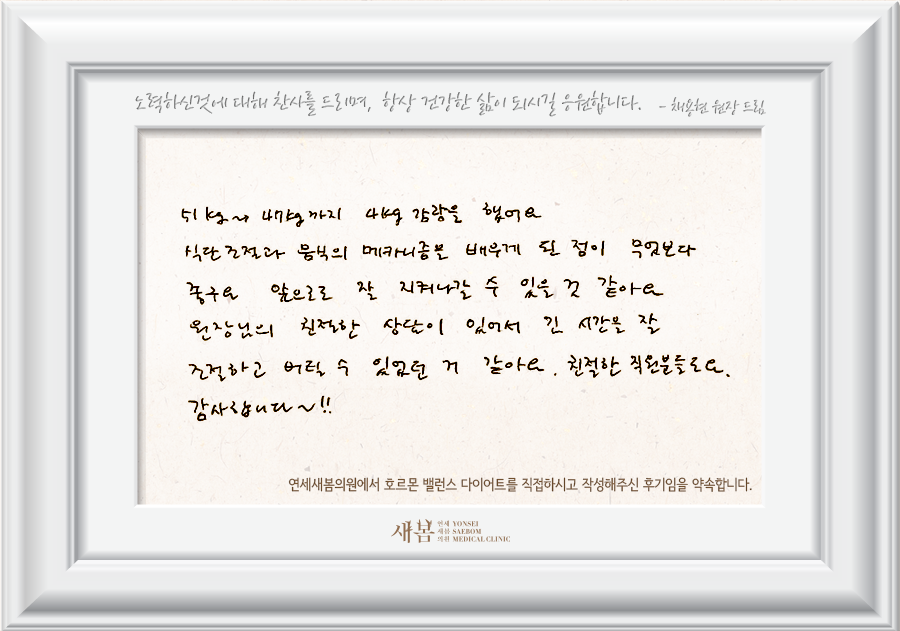 노력하신것에 대해 찬사를 드리며, 항상 건강한 삶이 되시길 응원합니다. - 채용현 원장 드림
51kg~ 47kg까지 4kg 감량을 했어요
식단조절과 음식의 메카니즘을 배우게 된 점이 무엇보다
좋구요 앞으로도 잘 지켜나갈 수 있을 것 같아요
원장님의 친절한 상담이 있어서 긴 시간을 잘
조절하고 버틸 수 있었던 거 같아요. 친절한 직원분들도요.
감사합니다~!!
연세새봄의원에서 호르몬 밸런스 다이어트를 직접하시고 작성해주신 후기임을 약속합니다.
새봄 연세 YONSEI
새봄 SAEBOM
의원 MEDICAL CLINIC